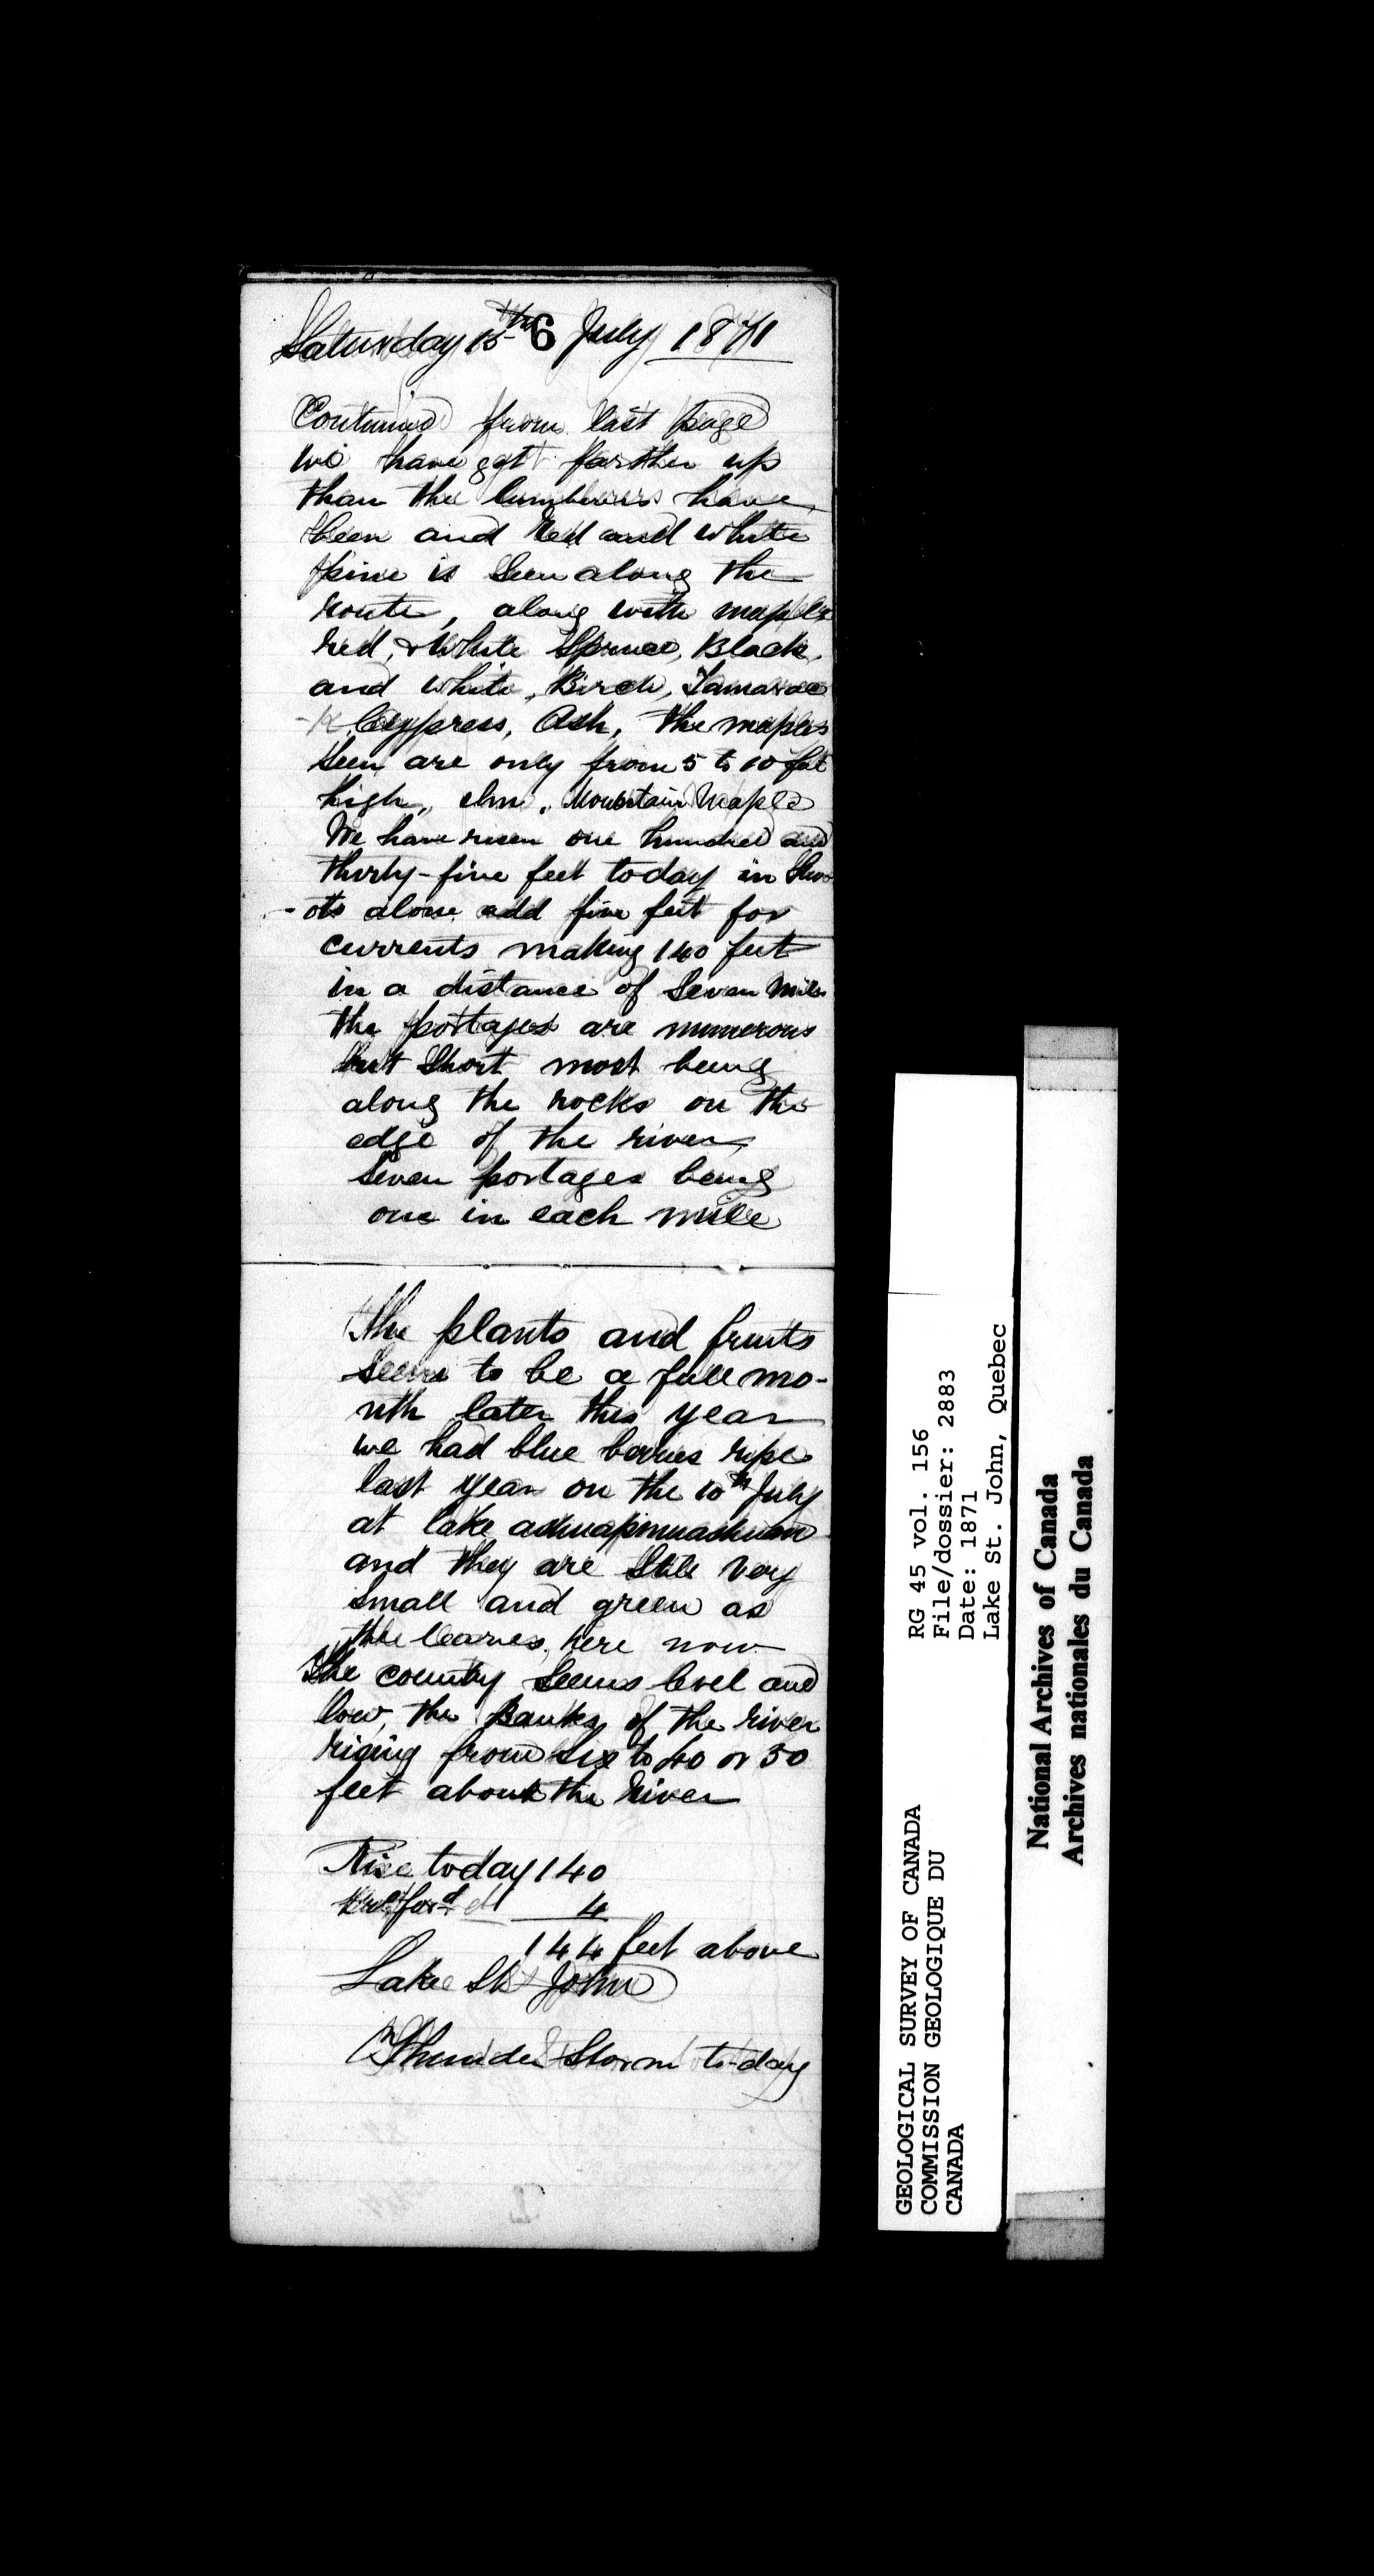 Saturday 15th 6 July 1871
Continued from last page
we have got farther up
than the lumberers have
been and red and white
pine is seen along the
route, along with maple
red, & White Spruce, Black
and white, Birch, Tamarac
-k Cyppress, Ash, the maples
seen are only from 5 to 10 feet
high, elm, Mountain Maple
We have risen one hundred and
thirty-five feet today in Shoo
-ots alone add five feet for
currents making 140 feet
in a distance of Seven Miles
the portages are numerous
but Short most being
along the rocks on the
edge of the river
Seven portages being
one in each mile
The plants and fruits
Seem to be a full mo-
nth later this year
we had blue berries ripe
last year on the 10th July
at lake
and they are Still very
small and green as
the leaves, here now
The country Seems level and
low, the Banks of the river
rising from Six to 40 or 50
feet about the River
Rise today 140
4
144 feet above
Lake St John
Thunder Storm to-day
GEOLOGICAL SURVEY OF CANADA
COMMISSION GEOLOGIQUE DU
CANADA
RG 45 vol. 156
File/dossier: 2883
Date: 1871
Lake St. John, Quebec
National Archives of Canada
Archives nationales du Canada